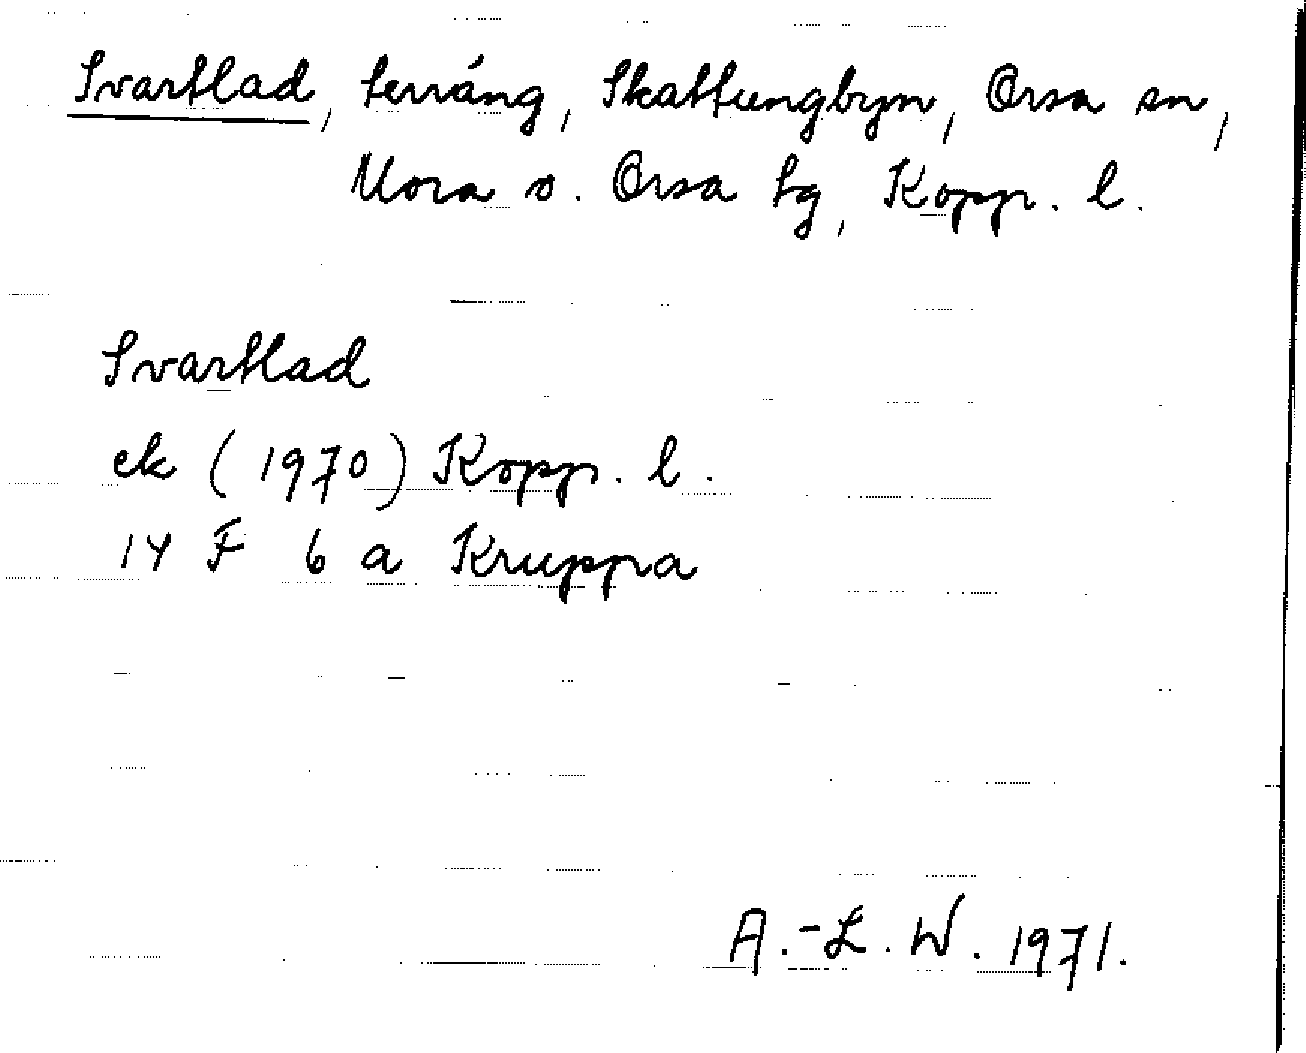 Svartlad, terräng, Skattungbyn, Orsa sn,
Mora o. Orsa tg, Kopp. l.
Svartlad
ek (1970) Kopp. l.
14 F 6 a Kruppa
A.-L. W. 1971.